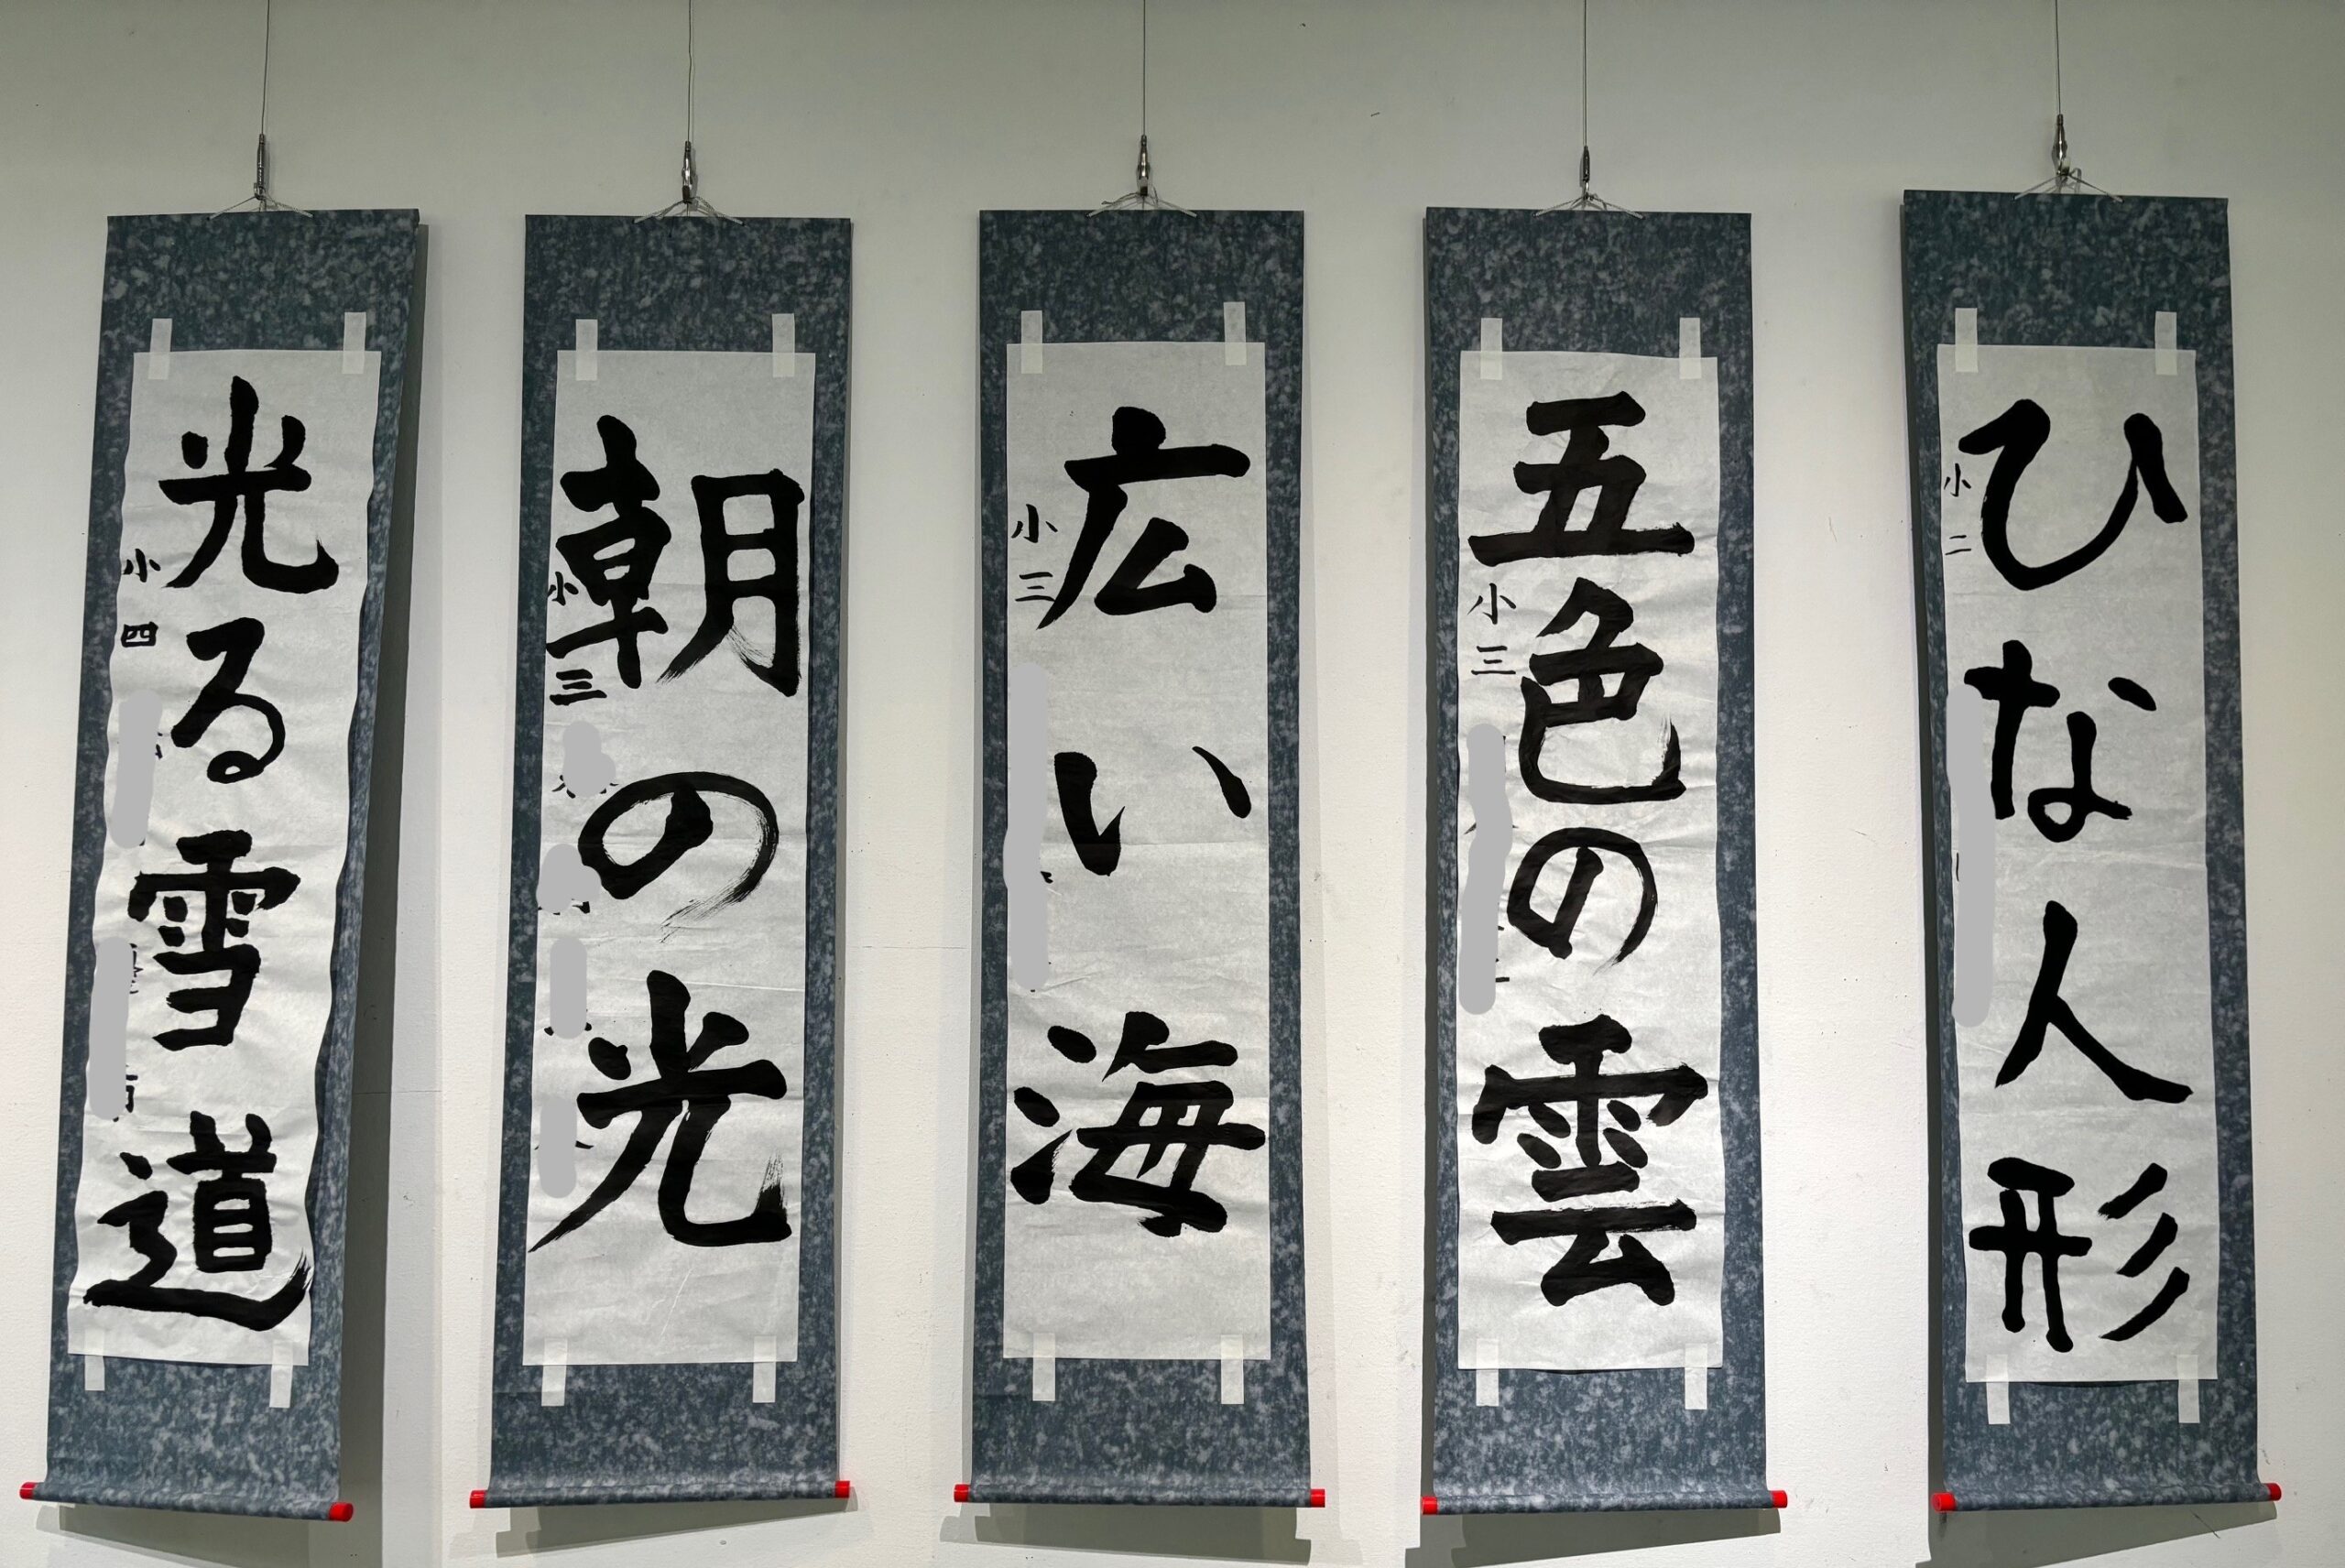 ひな人形
小二
五色の雲
小三
広い海
小三
朝の光
小三
光る雪道
小四